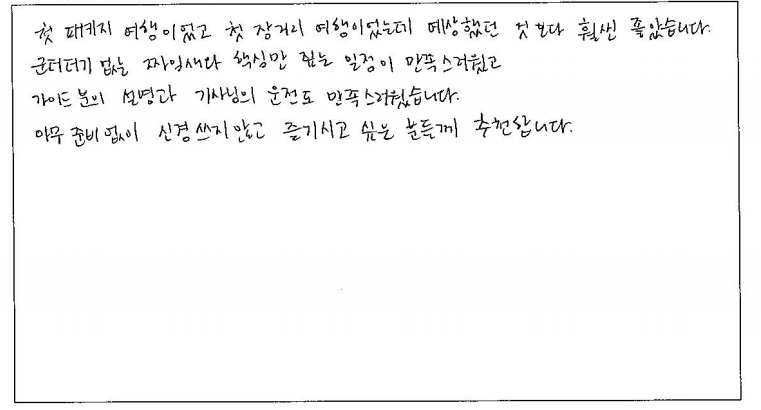 첫 패키지 여행이었고 첫 장거리 여행이었는데 예상했던 것 보다 훨씬 좋았습니다.
군더더기 없는 짜임새다 핵심만 짚는 일정이 만족스러웠고
가이드 분의 설명과 기사님의 운전도 만족스러웠습니다.
아무 준비 없이 신경쓰지않고 즐기시고 싶은 분들께 추천합니다.